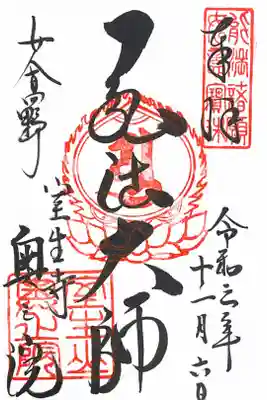 奉拝
令和元年
十一月六日
弘法大師
女人高野
室生寺
奥之院